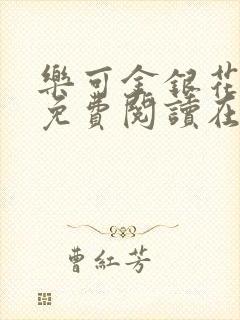 樂可金銀花
免費閱讀在
曹紅芳